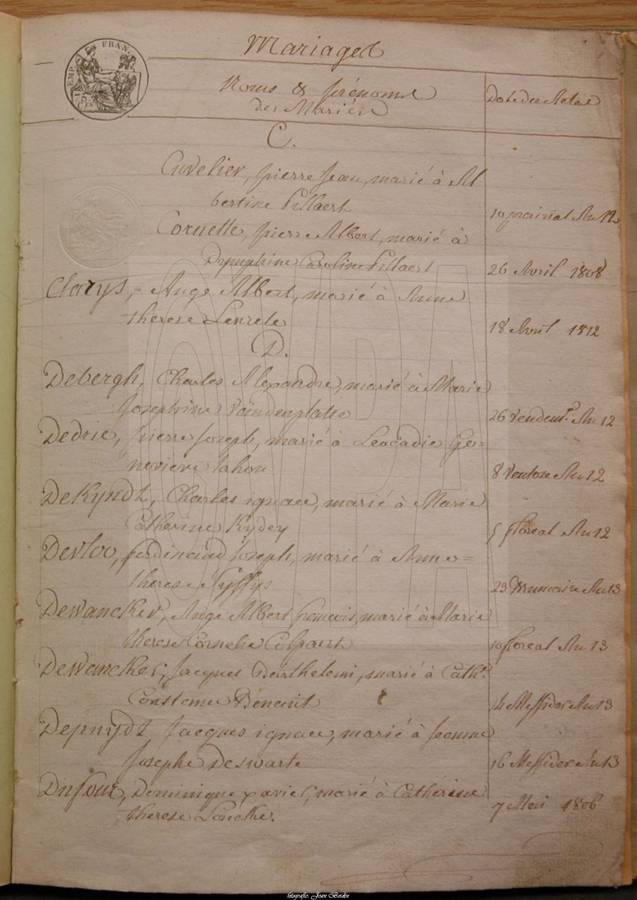 Mariages
EMP. FRAN.
Noms & prénoms
des Mariés
Date des Actes
C.
Cuvelier, pierre Jean, marié à Al
bertine Pillaert
10 prairial An 12
Cornette, pierre Albert, marié à
Dymphine Caroline Pillaert
26 Avril 1808
Clarys, Ange Albert, marié à Anne
therese
18 Avril 1812
D.
Debergh, Charles Alexandre, marié à Marie
Josephine Vandenplatte
26 Vendemre An 12
Dedrie, pierre Joseph, marié à Leocadie Ge-
nevieve
8 Ventose An 12
DeKyndt, Charles ignace, marié à Marie
Catherine Rydey
5 floreal An 12
Devloo, ferdinand Joseph, marié à Anne =
therese
29 Brumaire An 13
Dewancker, Ange Albert francois, marié à Marie
therese Cornelie Colpaert
10 floreal An 13
Dewancker, Jacques Barthelemi, marié à Cathe
Constance Benoit
14 Messidor An 13
Depuydt Jacques ignace, marié à Jeanne
Josephe Deswarte
16 Messidor An 13
Dufour, Dominique xavier, marié à Catherine
therese
7 Mai 1806
fotografie: Joan Boidin